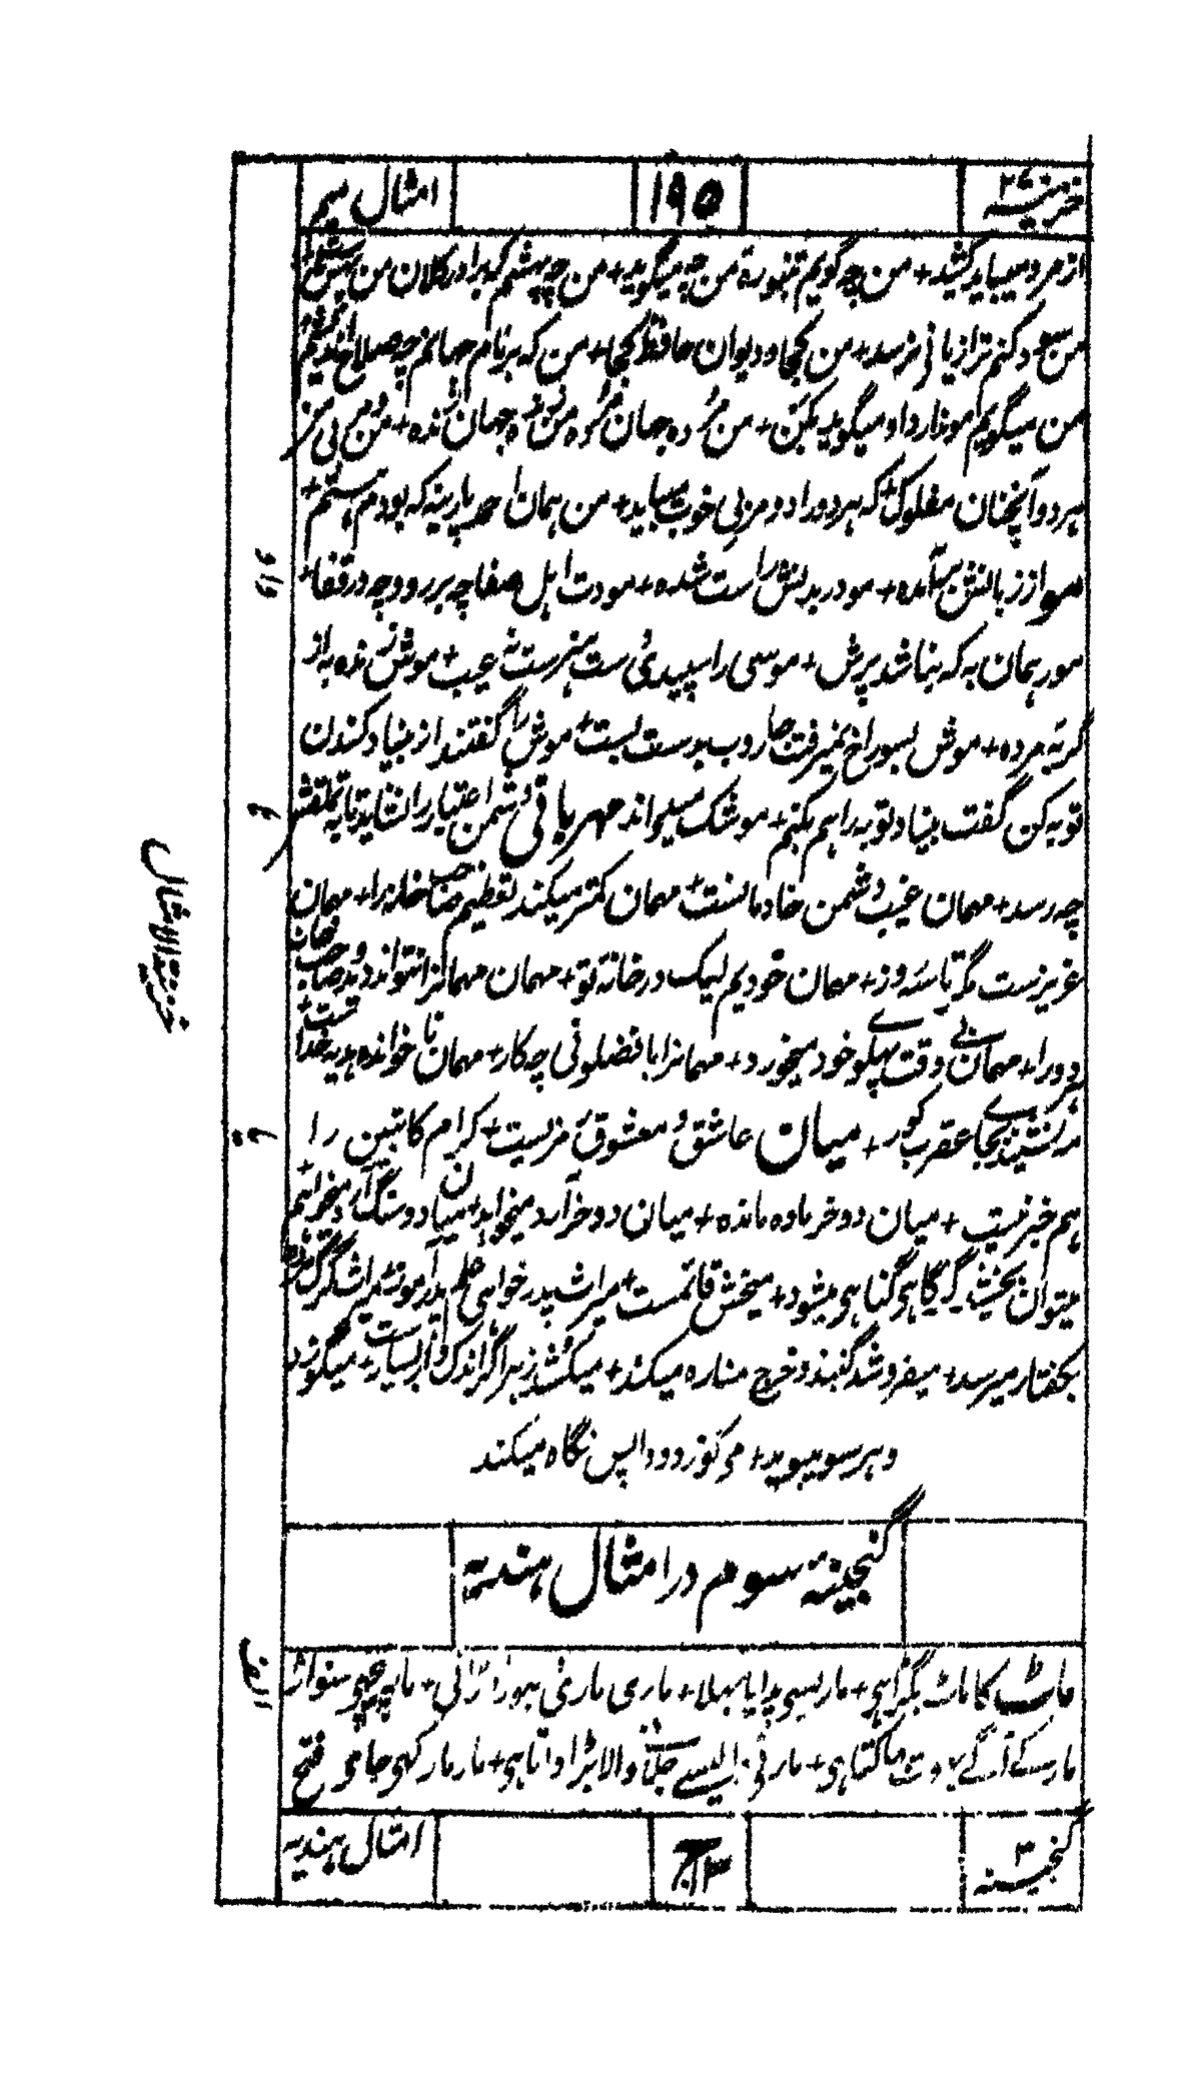 خزینۂ ۲۴ ۱۹۵ امثال میم
از مرد میباید کشید + من چه گویم تنبورهٔ من چه میگوید + من چه پشمم که برادر کلان من پشم
من سعی کنم ترا زیانی نرسد + من کجا و دیوان حافظ کجا + من که بدنام جهانم چه صلاح اندیشم
من میگویم مو ندارد او میگوید بکن + من مرده جهان مرده من زنده جهان زنده + من و من بی منز
هر دو آنچنان مفلوک + که هر دو را دو مربی خوب میباید + من همان احمد پارینه که بودم هستم +
مو از زبانش برآمده + مو در بدنش راست شده + مودت اهل صفا چه بر رو و چه در قفا +
مور همان به که نباشد پرش + موسی را سپیدی دست هنرست نه عیب + موش زنده به از
گربه مرده + موش بسوراخ نمیرفت جاروب بدمست بست + موش را گفتند از بنیاد کندن
توبه کن گفت بنیاد توبه را هم بکنم + موشک میدواند مهر باقی دشمن اعتبار را نشاید تا به تملقش
چه رسد + مهمان غیب دشمن خادمانست + مهمان کمتر میکند تعظیم صاحب خانه را + مهمان
عزیزست مگر تا سه روز + مهمان خودیم لیک در خانه تو + مهمان مهمانرا نتواند دید و صاحب خانه
هر دو را + مهمان بی وقت از پهلوی خود میخورد + مهمانرا با فضولی چه کار + مهمان ناخوانده هدیه خداست +
نشیند بجای عقرب کور + میان عاشق و معشوق رمزیست + کرام کاتبین را
هم خبر نیست + میان دو خر ماده مانده + میان دو خر آرد میخواهد + میان دو سنگ آرد میخواهم
میتوان بخشید گر گاهی گناهی میشود + میخش قائمست + میراث پدر خواهی علم پدر آموز +
بکفتار میرسد + میفروشد گنبد و خرج مناره میکند + میکشد زهر اگر اندک و گر بسیارست + میگوزد
و هر سو میبوید + می گوزد و واپس نگاه میکند
گنجینۂ سوم در امثال ہندیہ
ماٹ کا ماٹ بگڑا ہی + مار سی پدایا بھلا + ماری ماری
مار کے آگے بھوت بھاگتا ہی + مارنی والی سے جلانی والا بڑا داتا ہی + مار مار کہی جا ہی فتح
گنجینہ ۳ امثال ہندیہ
واو
ہا
یا
الف
خزینۃ الامثال